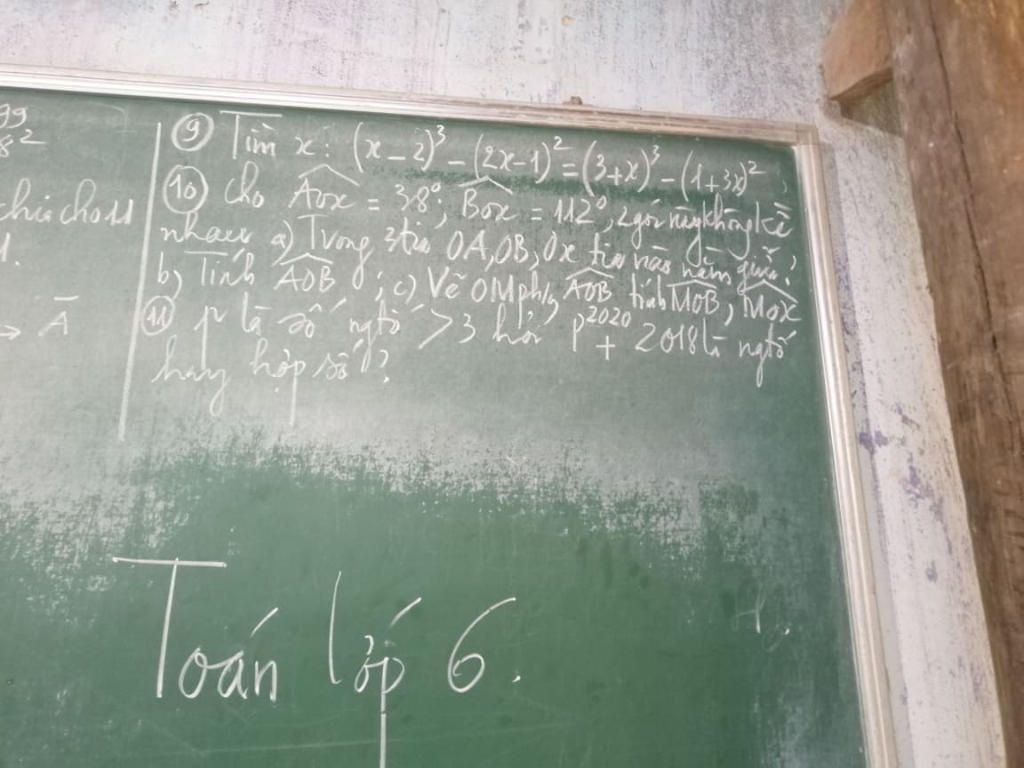 99
8²
chia cho 11
→ A̅
⑨ Tìm x: (x-2)³ - (2x-1)² = (3+x)³ - (1+3x)²
⑩ Cho AOx = 38°; BOx = 112°, 2 góc này không kề
nhau a) Trong 3 tia OA, OB, Ox tia nào nằm giữa?
b, Tính AOB; c) Vẽ OM ph/g AOB tính MOB, MOx
⑪ p là số ngtố > 3 hỏi P²⁰²⁰ + 2018 là ngtố
hay hợp số?
Toán lớp 6.